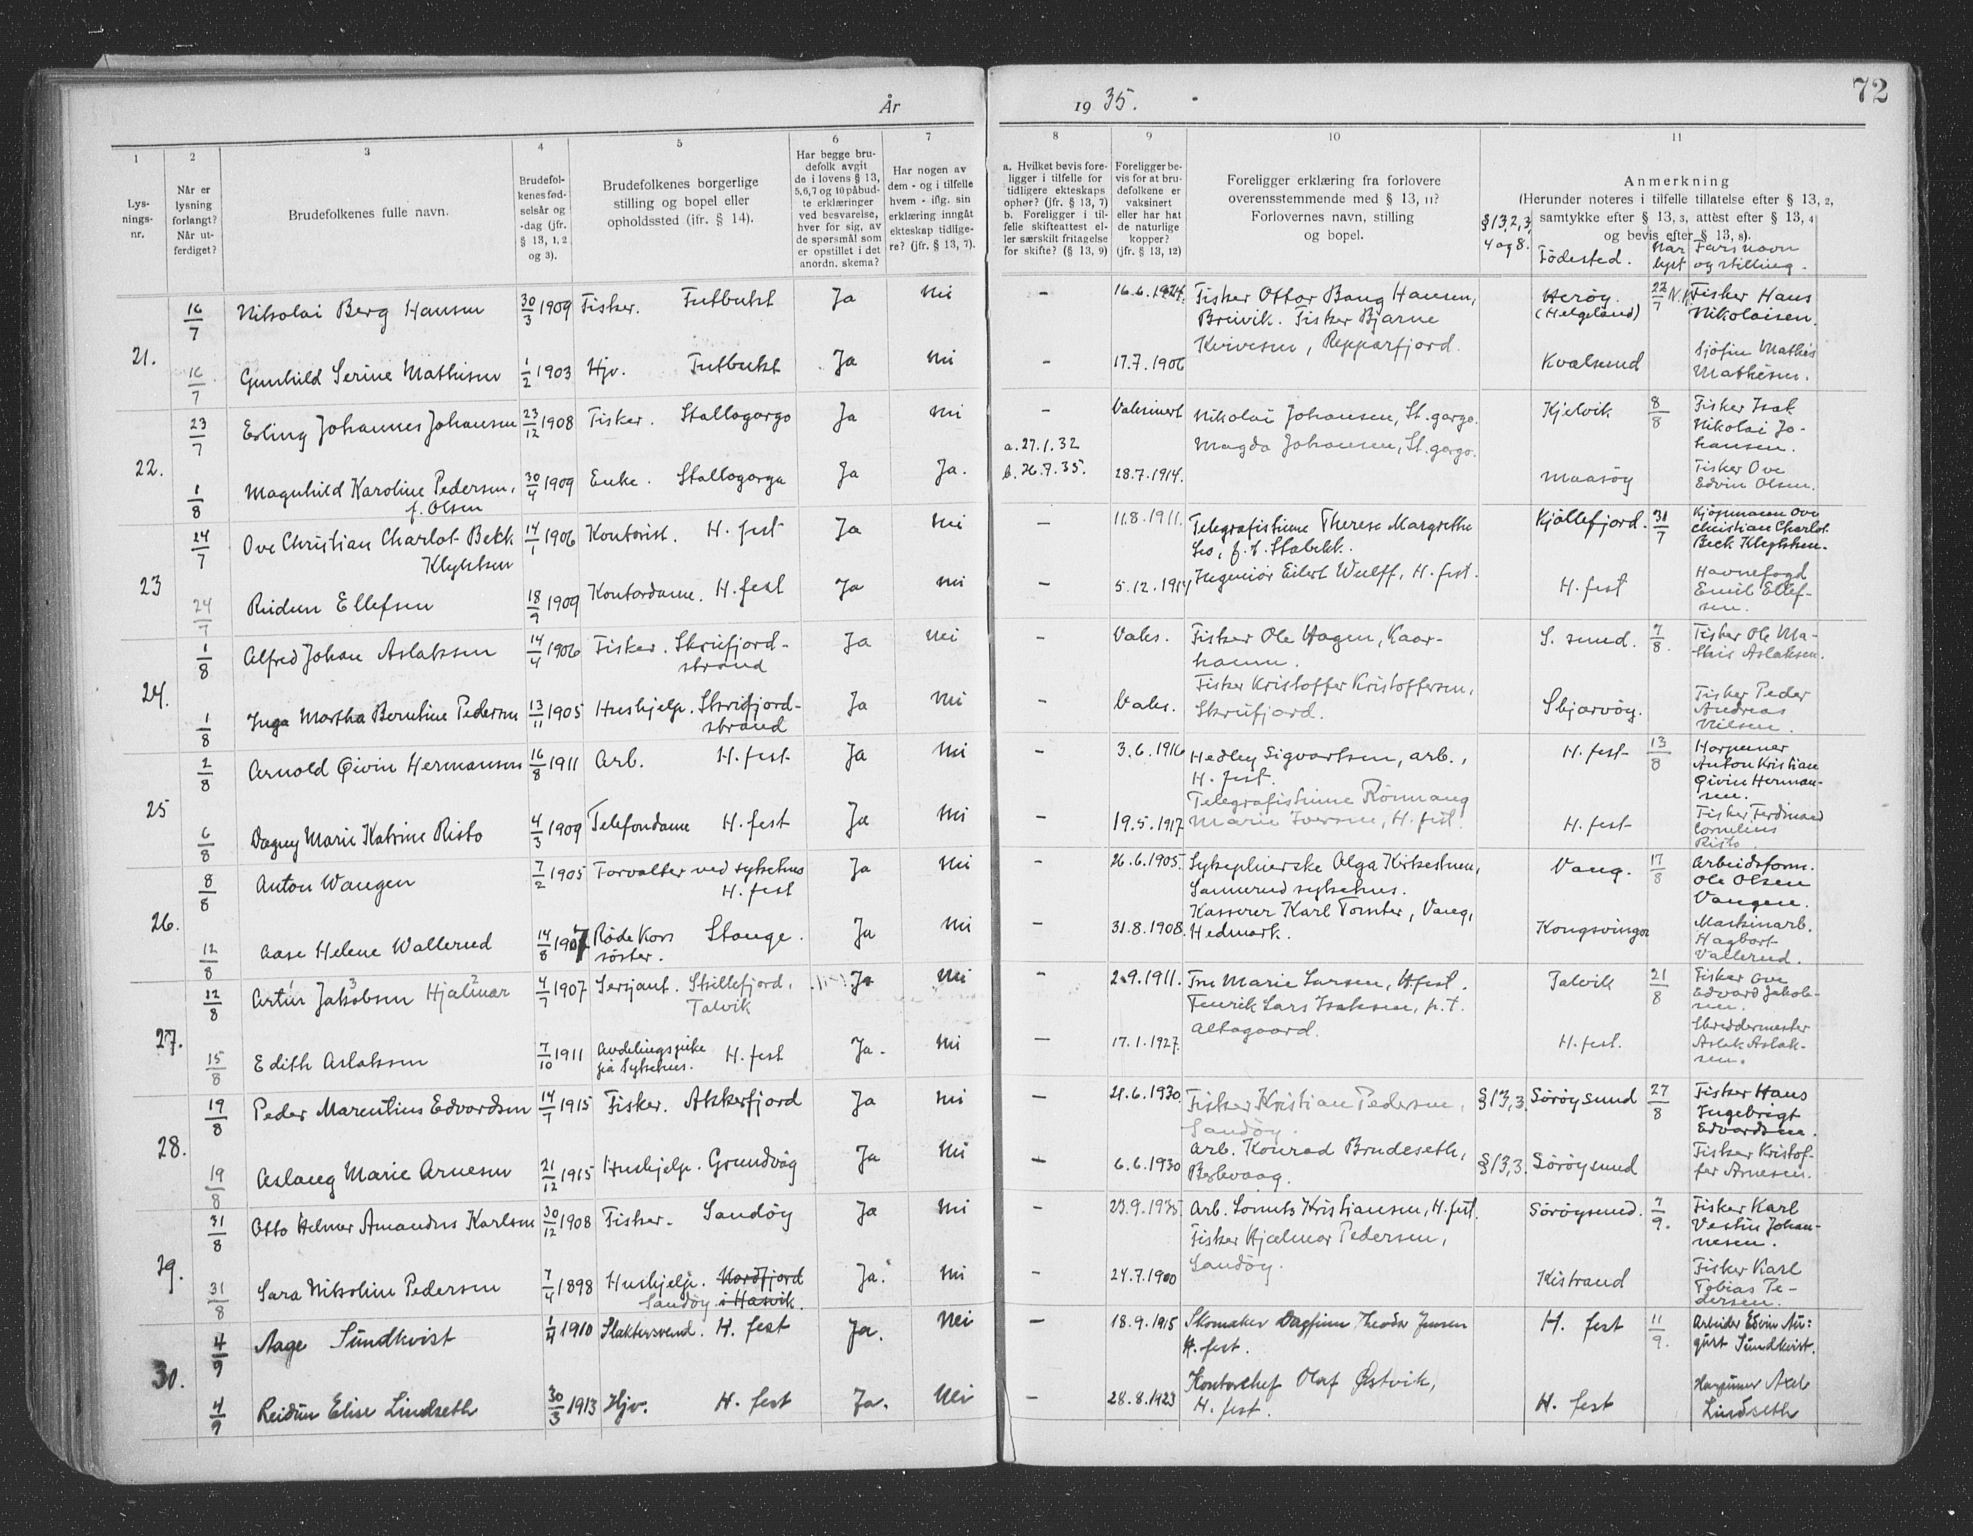 År 1935.
72
1 2 3 4 5 6 7 8 9 10 11
Lys-
nings-
nr.
Når er
lysning
forlangt?
Når ut-
ferdiget?
Brudefolkenes fulle navn.
Brudefol-
kenes fød-
selsår og
-dag (jfr.
§ 13, 1, 2
og 3).
Brudefolkenes borgerlige
stilling og bopel eller
opholdssted (ifr. § 14).
Har begge bru-
defolk avgit
de i lovens § 13,
5,6,7 og 10 påbud-
te erklæringer
ved besvarelse,
hver for sig, av
de spørsmål som
er opstillet i det
anordn. skema?
Har nogen av
dem - og i tilfelle
hvem - iflg. sin
erklæring inngått
ekteskap tidlige-
re? (jfr. § 13, 7).
a. Hvilket bevis fore-
ligger i tilfelle for
tidligere ekteskaps
ophør? (jfr. § 13, 7)
b. Foreligger i til-
felle skifteattest el-
ler særskilt fritagelse
for skifte? (§ 13, 9)
Foreligger be-
vis for at bru-
defolkene er
vaksinert
eller har hat
de naturlige
kopper?
(jfr. § 13, 12)
Foreligger erklæring fra forlovere
overensstemmende med § 13, 11?
Forlovernes navn, stilling
og bopel.
Anmerkning
(Herunder noteres i tilfelle tillatelse efter § 13, 2,
samtykke efter § 13, 3, attest efter § 13, 4
og bevis efter § 13, 8).
§13,2,3,
4 og 8.
Fødested.
Når
lyst
Fars navn
og stilling.
21.
16/7 Nikolai Berg Hansen 30/3 1909 Fisker. Ja Nei - 16.6.1924. Fisker Ottar Bang Hansen,
Breivik. Fisker Bjarne
Kvivesen, Repparfjord.
Herøy
(Helgeland)
22/7 Fisker Hans
Nikolaisen.
16/7 Gunhild Serine Mathisen 1/2 1903 Hjv. Ja Nei - 17.7.1906 Kvalsund
Mathis
Mathisen.
22.
23/7 Erling Johannes Johansen 23/12 1908 Fisker. Stallogargo Ja Nei - Vaksinert Nikolai Johansen, St. gargo.
Magda Johansen, St. gargo.
Kjelvik 8/8 Fisker Isak
Nikolai Jo-
hansen.
1/8 Magnhild Karoline Pedersen,
f. Olsen
30/4 1909 Enke. Stallogargo Ja Ja. a. 27.1.32
b. 26.7.35. 28.7.1914. Maasøy Fisker Ove
Edvin Olsen.
23
24/7 Ove Christian Charlot Beck
Klykken
14/1 1906 Kontorist. H. fest Ja Nei - 11.8.1911. Telegrafistinne Therese Margrethe
f. S. Stabekk.
Ingeniør Eilert Wulff, H. fest.
Kjøllefjord. 31/7 Kjøpmann Ove
Christian Charlot
Beck Klykken.
24/7 Reidun Ellefsen 18/9 1909 Kontordame. H. fest Ja Nei - 5.12.1914 H. fest Havnefogd
Emil Ellef-
sen.
24.
1/8 Alfred Johan Aslaksen 14/4 1906 Fisker. Skreifjord-
strand
Ja Nei - Vaks. Fisker Ole Hagen, Kaar-
hamn.
Fisker Kristoffer Kristoffersen,
Skreifjord.
S. sund. 7/8. Fisker Ole Ma-
Aslaksen.
1/8 Inga Martha Berntine Pedersen 13/11 1905 Hushjelp. Skreifjord-
strand
Ja Nei - Vaks. Skjervøy. Fisker Peder
Andreas
Nilsen.
25
2/8 Arnold Øivin Hermansen 16/8 1911 Arb. H. fest Ja Nei - 3.6.1916 Hedley Sigvartsen, arb.,
H. fest.
Telegrafistinne Rønnaug
Marie Iversen, H. fest.
H. fest 13/8 Harpuner
Anton Kristian
Øivin Herman-
sen.
6/8 Dagny Marie Katrine Risto 4/3 1909 Telefondame H. fest Ja Nei - 19.5.1917 H. fest Fisker Ferdinand
Cornelius
Risto.
26.
8/8 Anton Wangen 7/2 1905 Forvalter ved sykehus
H. fest
Ja Nei - 26.6.1905. Sykepleierske Olga Kirkestuen,
Sannerud sykehus.
Kasserer Karl Tomter, Vang,
Hedmark.
Vang. 17/8 Arbeidsform.
Ole Olsen
Vangen.
12/8 Aase Helene Wallerud 14/8 1907 Røde Kors
søster.
Stange. Ja Nei - 31.8.1908. Kongsvinger Maskinarb.
Hagbart
Vallerud.
27.
12/8 Artur Jakobsen Hjalmar 4/7 1907 Sersjant. Skillefjord,
Talvik
Ja Nei - 2.9.1911. Fru Marie Larsen, H.fest.
Fenrik Lars Isaksen, p.t.
Altagaard.
Talvik 21/8 Fisker Ove
Edvard Jakob-
sen.
15/8 Edith Aslaksen 7/10 1911 Avdelingspike
på Sykehus.
H. fest Ja. Nei - 17.1.1927. H. fest. Skreddermester
Aslak Aslak-
sen.
28.
19/8 Peder Marentius Edvardsen 14/7 1915 Fisker. Akkerfjord Ja Nei - 21.6.1930 Fisker Kristian Pedersen,
Sandøy.
Arb. Konrad Brudeseth,
§13,3. Sørøysund 27/8 Fisker Hans
Ingebrigt
Edvardsen.
19/8 Aslaug Marie Arnesen 21/12 1915 Hushjelp. Grundvåg Ja Nei - 6.6.1930 §13,3. Sørøysund Fisker Kristof-
fer Arnesen.
29.
31/8 Otto Helmer Amandus Karlsen 30/12 1908 Fisker. Sandøy Ja Nei - 23.9.1935 Arb. Kristiansen, H.fest.
Fisker Hjalmar Pedersen,
Sandøy.
Sørøysund. 7/9. Fisker Karl
Vestin Johan-
nesen.
31/8 Sara Nikoline Pedersen 7/4 1898 Hushjelp. Nordfjord
Sandøy i Hasvik.
Ja. Nei - 24.7.1900 Kistrand Fisker Karl
Tobias Pe-
dersen.
30.
4/9 Aage Sundkvist 1/4 1910 Slaktersvend. H. fest Ja. Nei - 18.9.1915 Skomaker Dagfinn Theodor Jensen
H. fest.
Kontorchef Olaf Østvik,
H. fest.
H. fest 11/9. Arbeider Edvin Au-
gust Sundkvist.
4/9 Reidun Elise Lindseth 30/3 1913 Hjv. H. fest Ja. Nei - 28.8.1923 H. fest Harpuner Axel
Lindseth